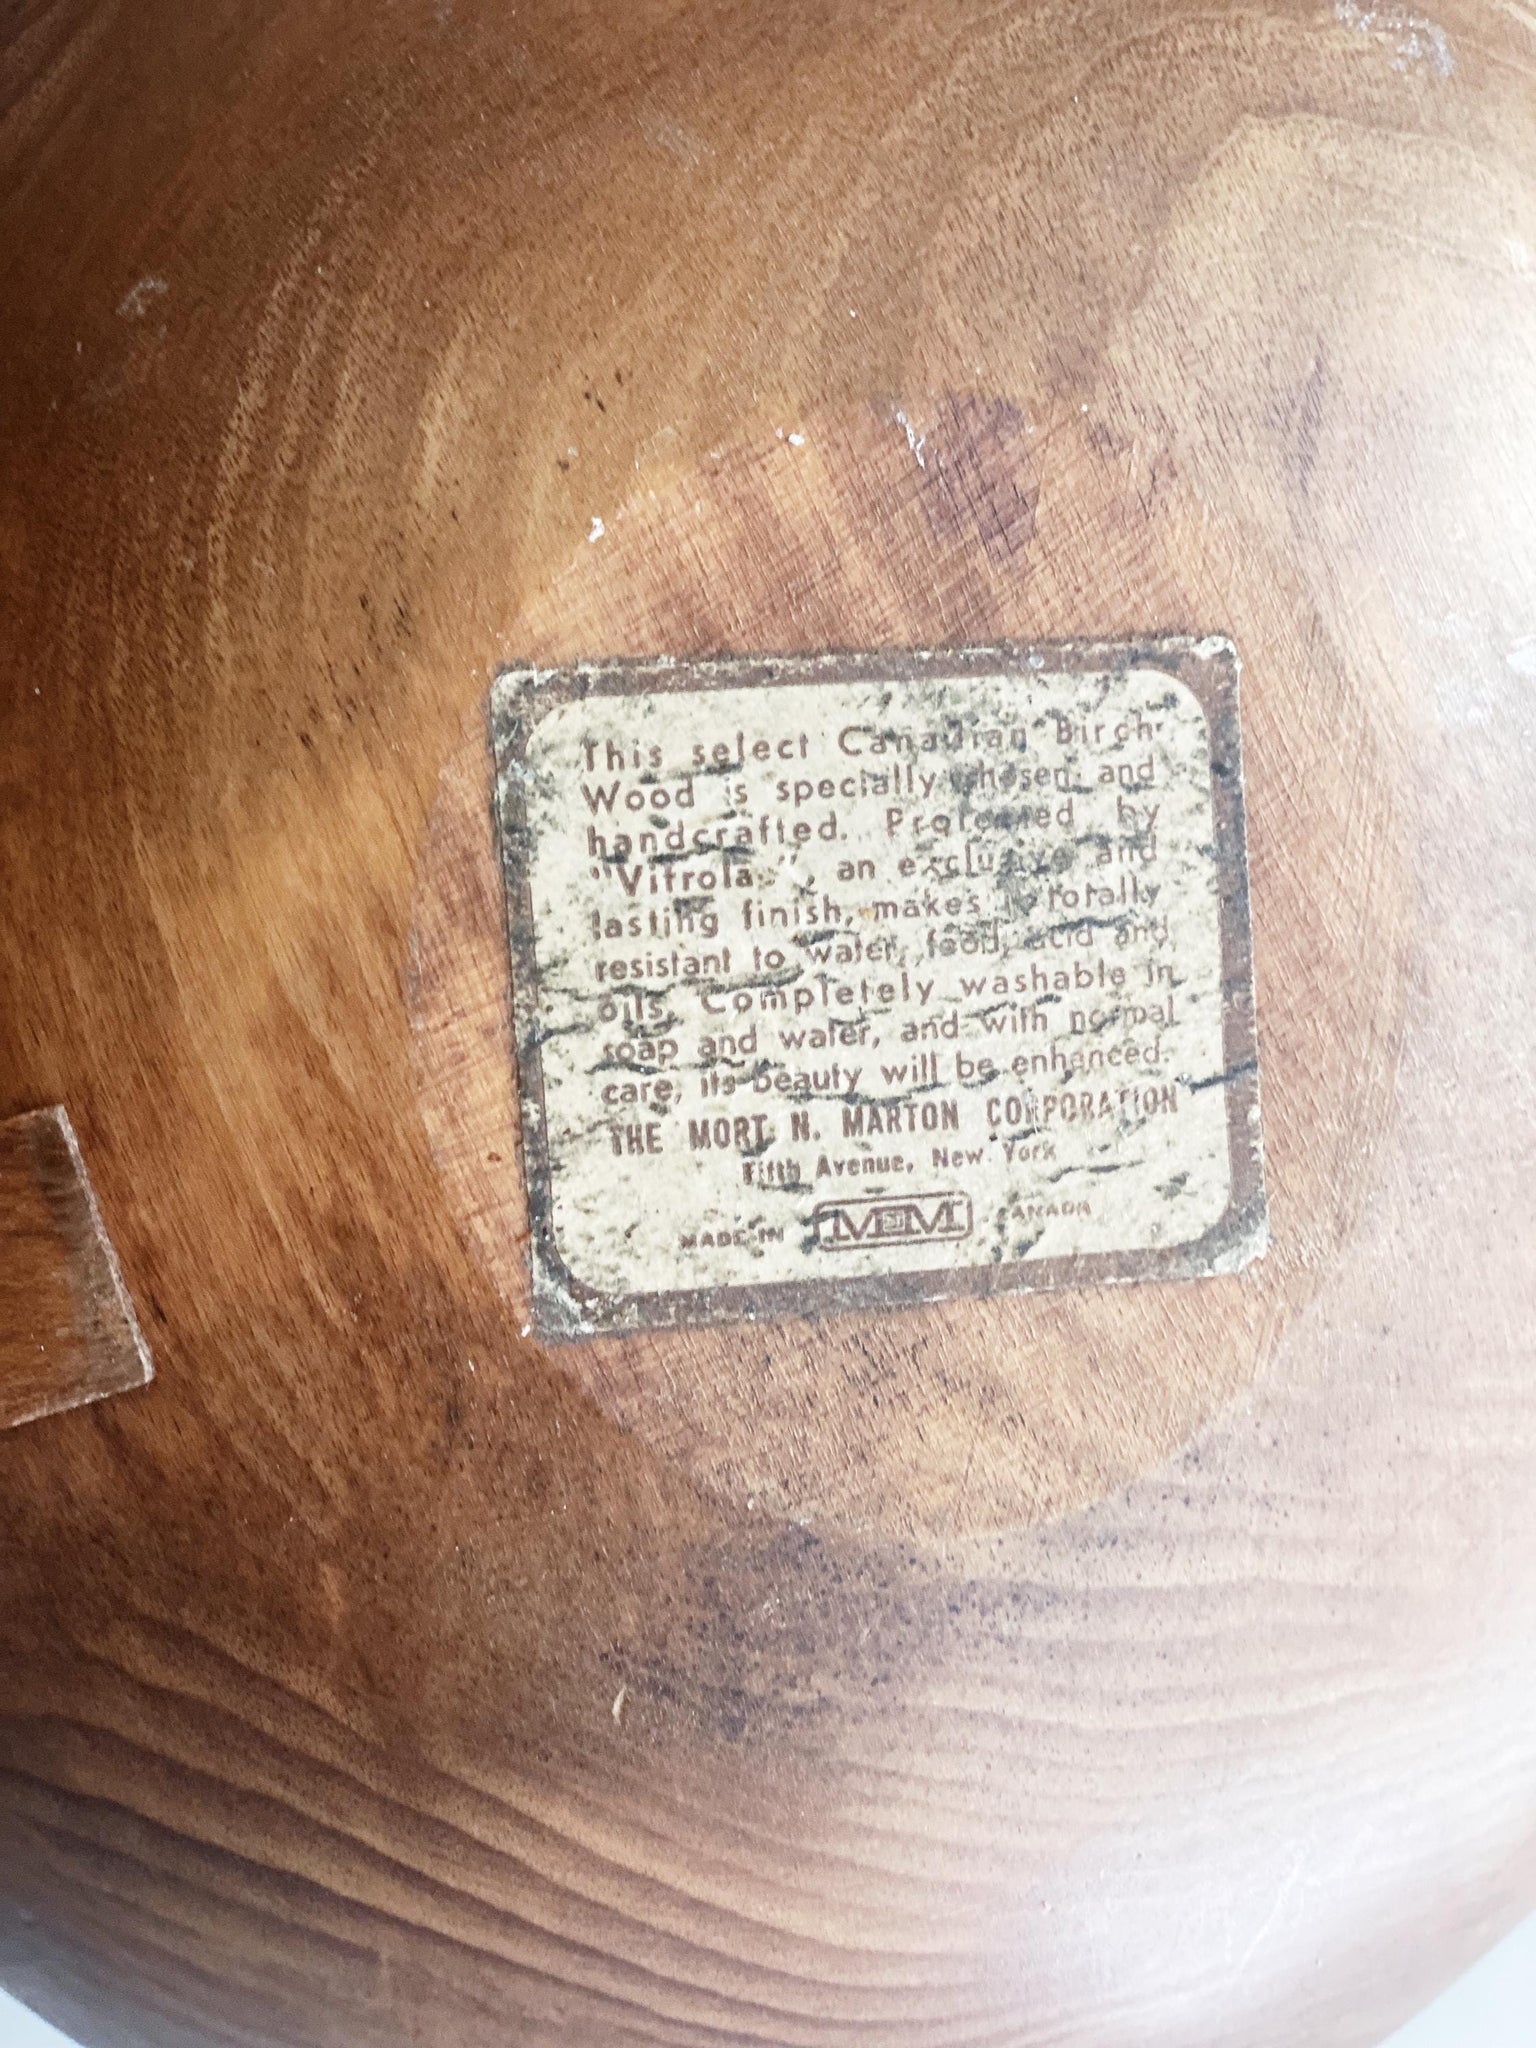 This select Canadian Birch
Wood is specially chosen and
handcrafted. Protected by
"Vitrolac", an exclusive and
lasting finish, makes it totally
resistant to water, food, acid and
oils. Completely washable in
soap and water, and with normal
care, its beauty will be enhanced.
THE MORT N. MARTON CORPORATION
Fifth Avenue, New York
MADE IN MM CANADA